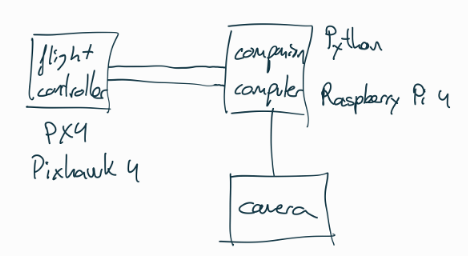 flight
controller
PX4
Pixhawk 4
companion
computer
Python
Raspberry Pi 4
camera